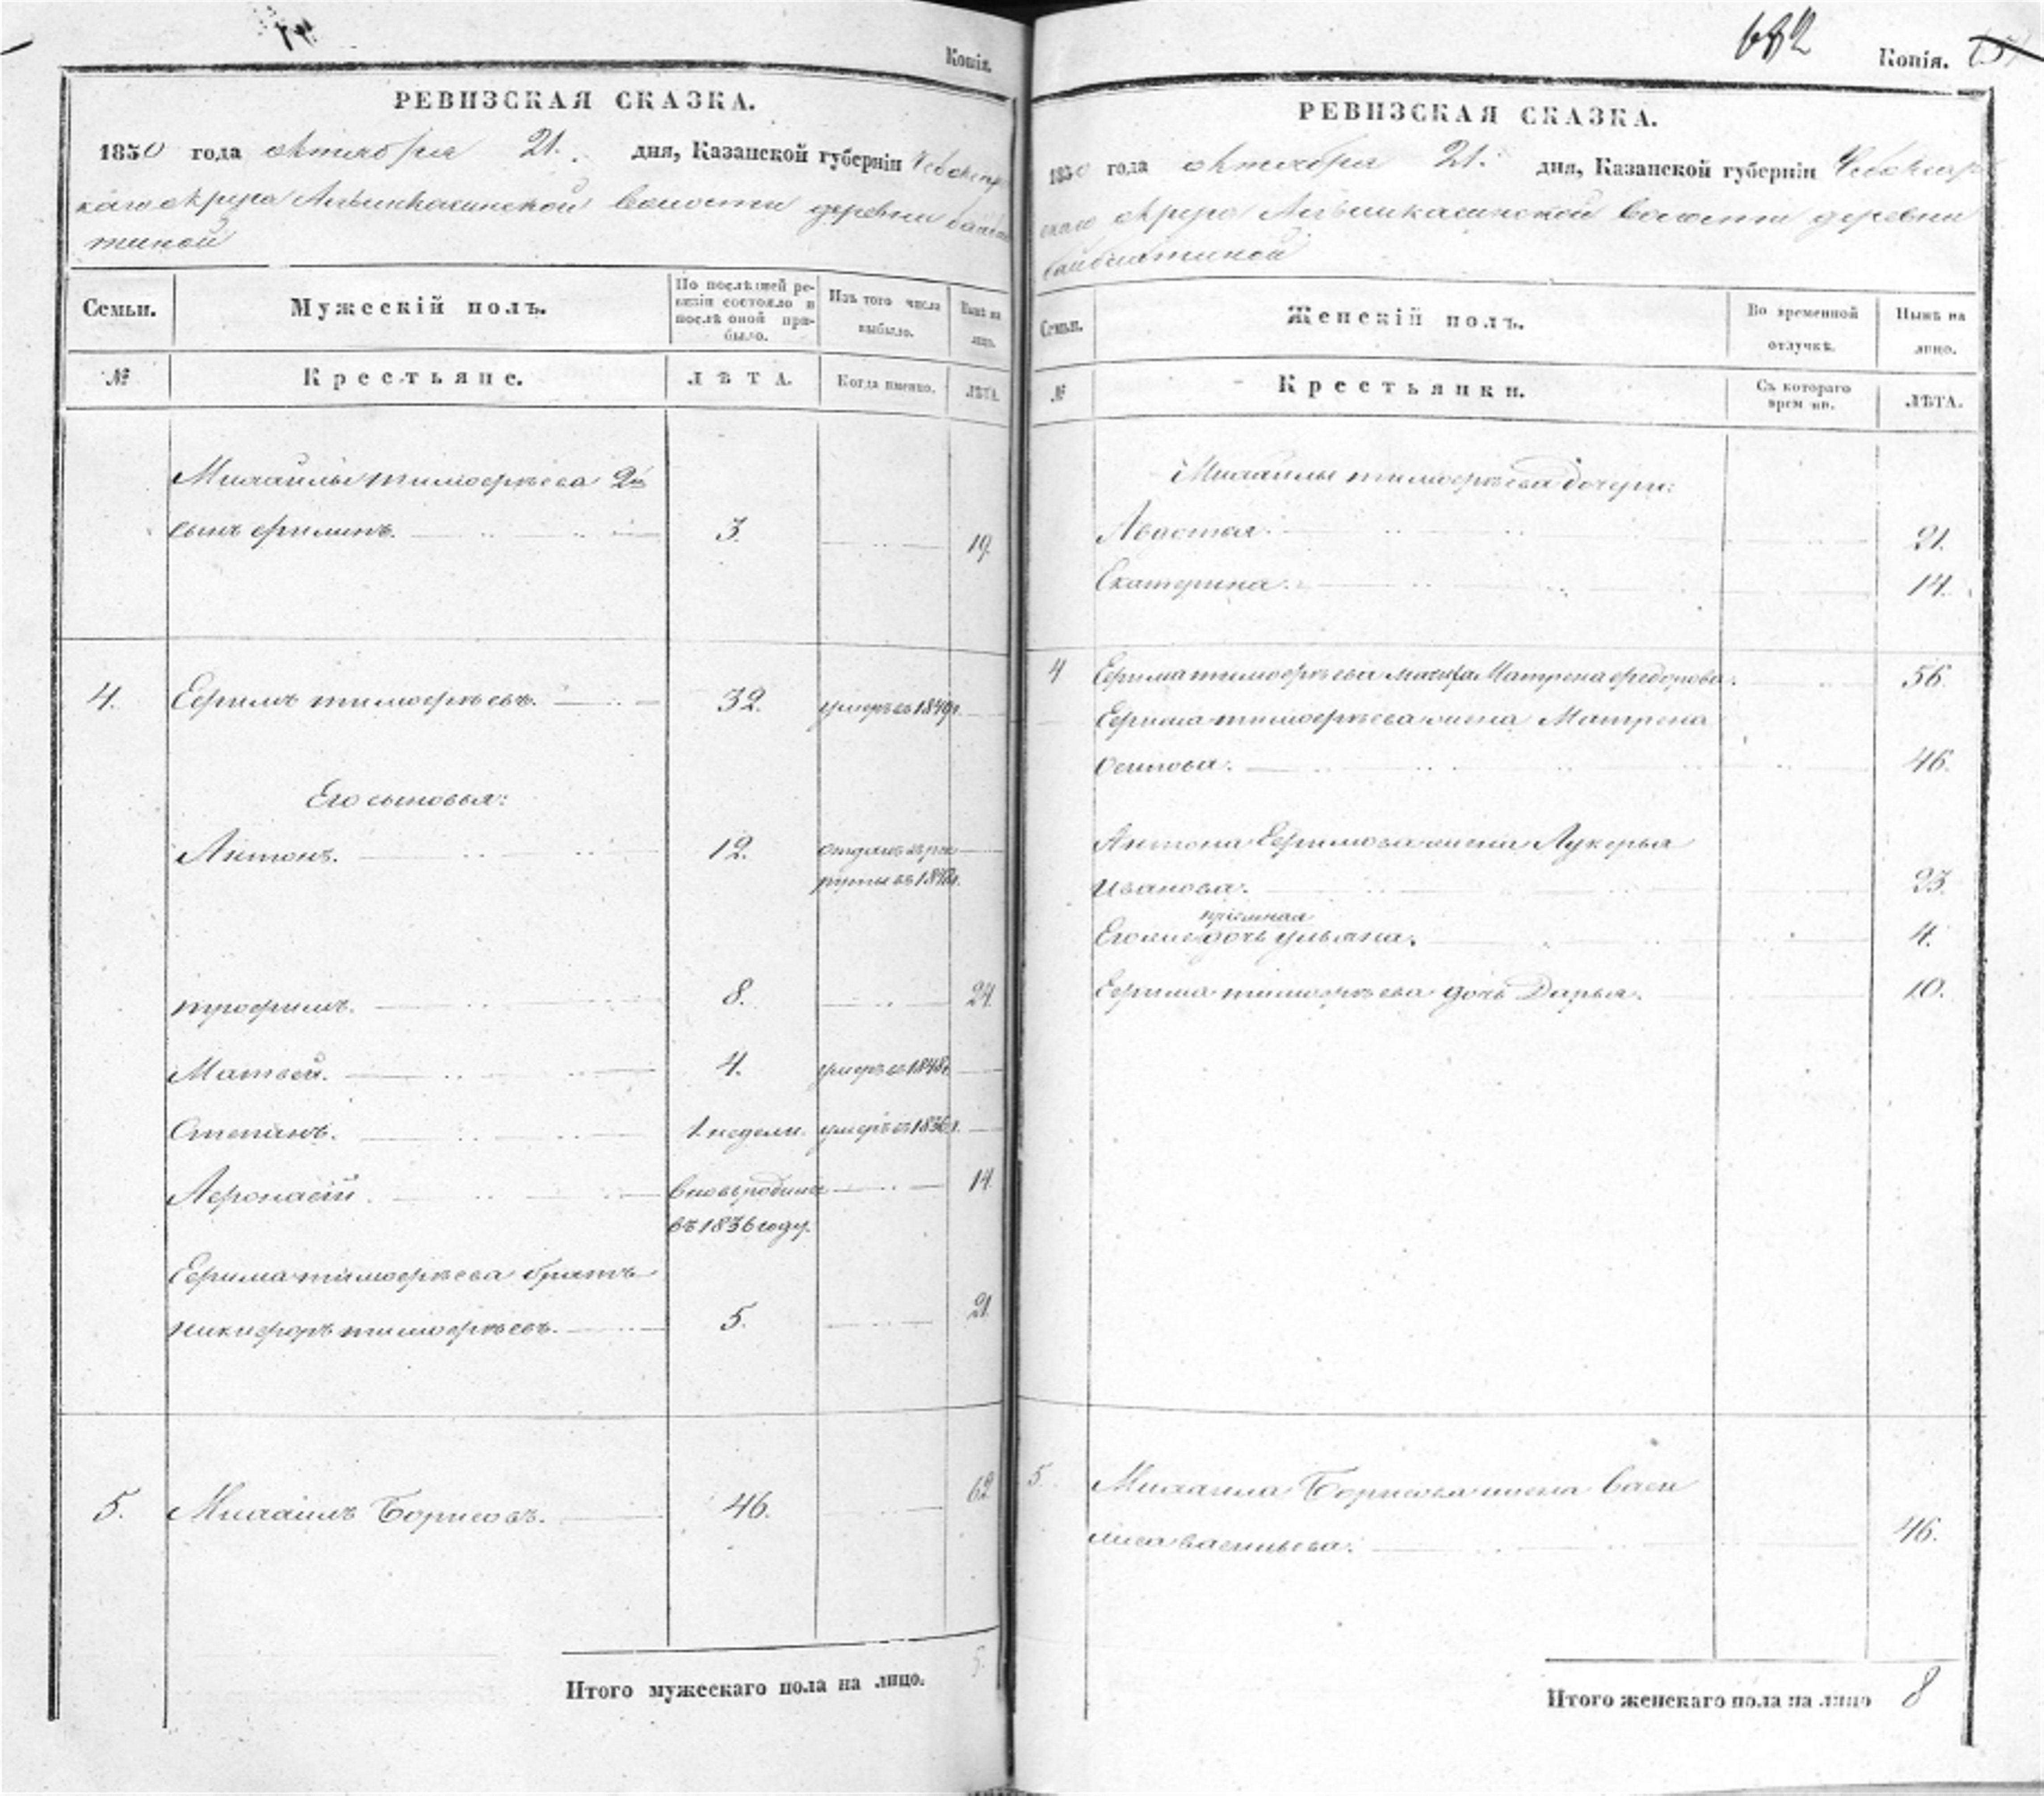 Копія.
РЕВИЗСКАЯ СКАЗКА.
1850 года октября 21. дня, Казанской губерніи Чебоксар
скаго округа Алымкасинской волости деревни Байбах
тиной
Семьи.
Мужескій полъ.
По послѣдней ре-
визіи состояло и
послѣ оной при-
было.
Изъ того числа
выбыло.
Нынѣ на
лицо.
№
Крестьяне.
ЛѢТА.
Когда именно.
ЛѢТА.
Михайлы Тимофѣева 2й
сынъ Филипъ. 3. 19.
4. Ефримъ Тимофѣевъ. 32. умеръ въ 1849г.
Его сыновья:
Антонъ. 12. отданъ въ рек
руты въ
Трофимъ. 8. 24.
Матвей. 4. умеръ въ 1848г.
Степанъ. 1. недели. умеръ въ 1836г.
Афонасій. вновьрожденъ 14.
въ 1836 году.
Ефрима Тимофѣева братъ
Никифоръ Тимофѣевъ. 5. 21.
5. Михаилъ Борисовъ. 46. 62
Итого мужескаго пола на лицо.
682
Копія.
РЕВИЗСКАЯ СКАЗКА.
1850 года октября 21. дня, Казанской губерніи Чебоксар
скаго округа Алымкасинской волости деревни
Байбахтиной
Семьи.
Женскій полъ.
Во временной
отлучкѣ.
Нынѣ на
лицо.
№
Крестьянки.
Съ котораго
времени.
ЛѢТА.
Михайлы Тимофѣева дочери:
Авдотья. 21.
Екатерина. 14.
4 Ефрима Тимофѣева мачиха Матрена Федорова. 56.
Ефрима Тимофѣева жена Матрена
Осипова. 46.
Антона Ефримова жена Лукерья
Иванова. 23.
пріемная
Его же дочь Ульяна. 4.
Ефрима Тимофѣева дочь Дарья. 10.
5. Михаила Борисова жена Васи
лиса Васильева. 46.
Итого женскаго пола на лицо 8